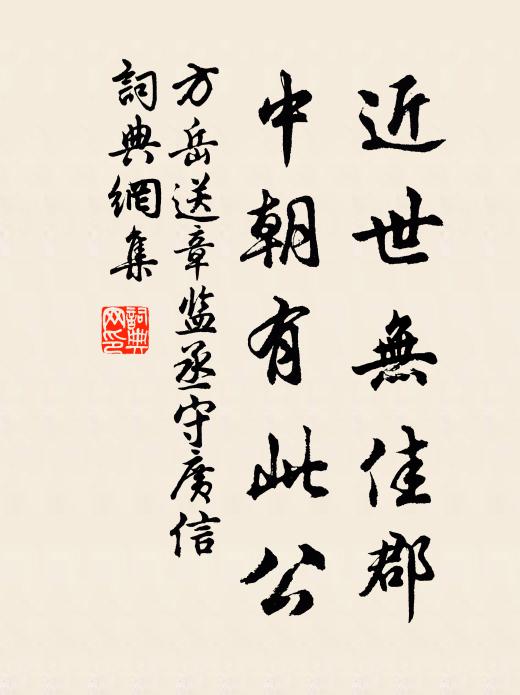 近世無佳郡
中朝有此公
方岳送章监丞守廣信
詞典網集
詞典网印